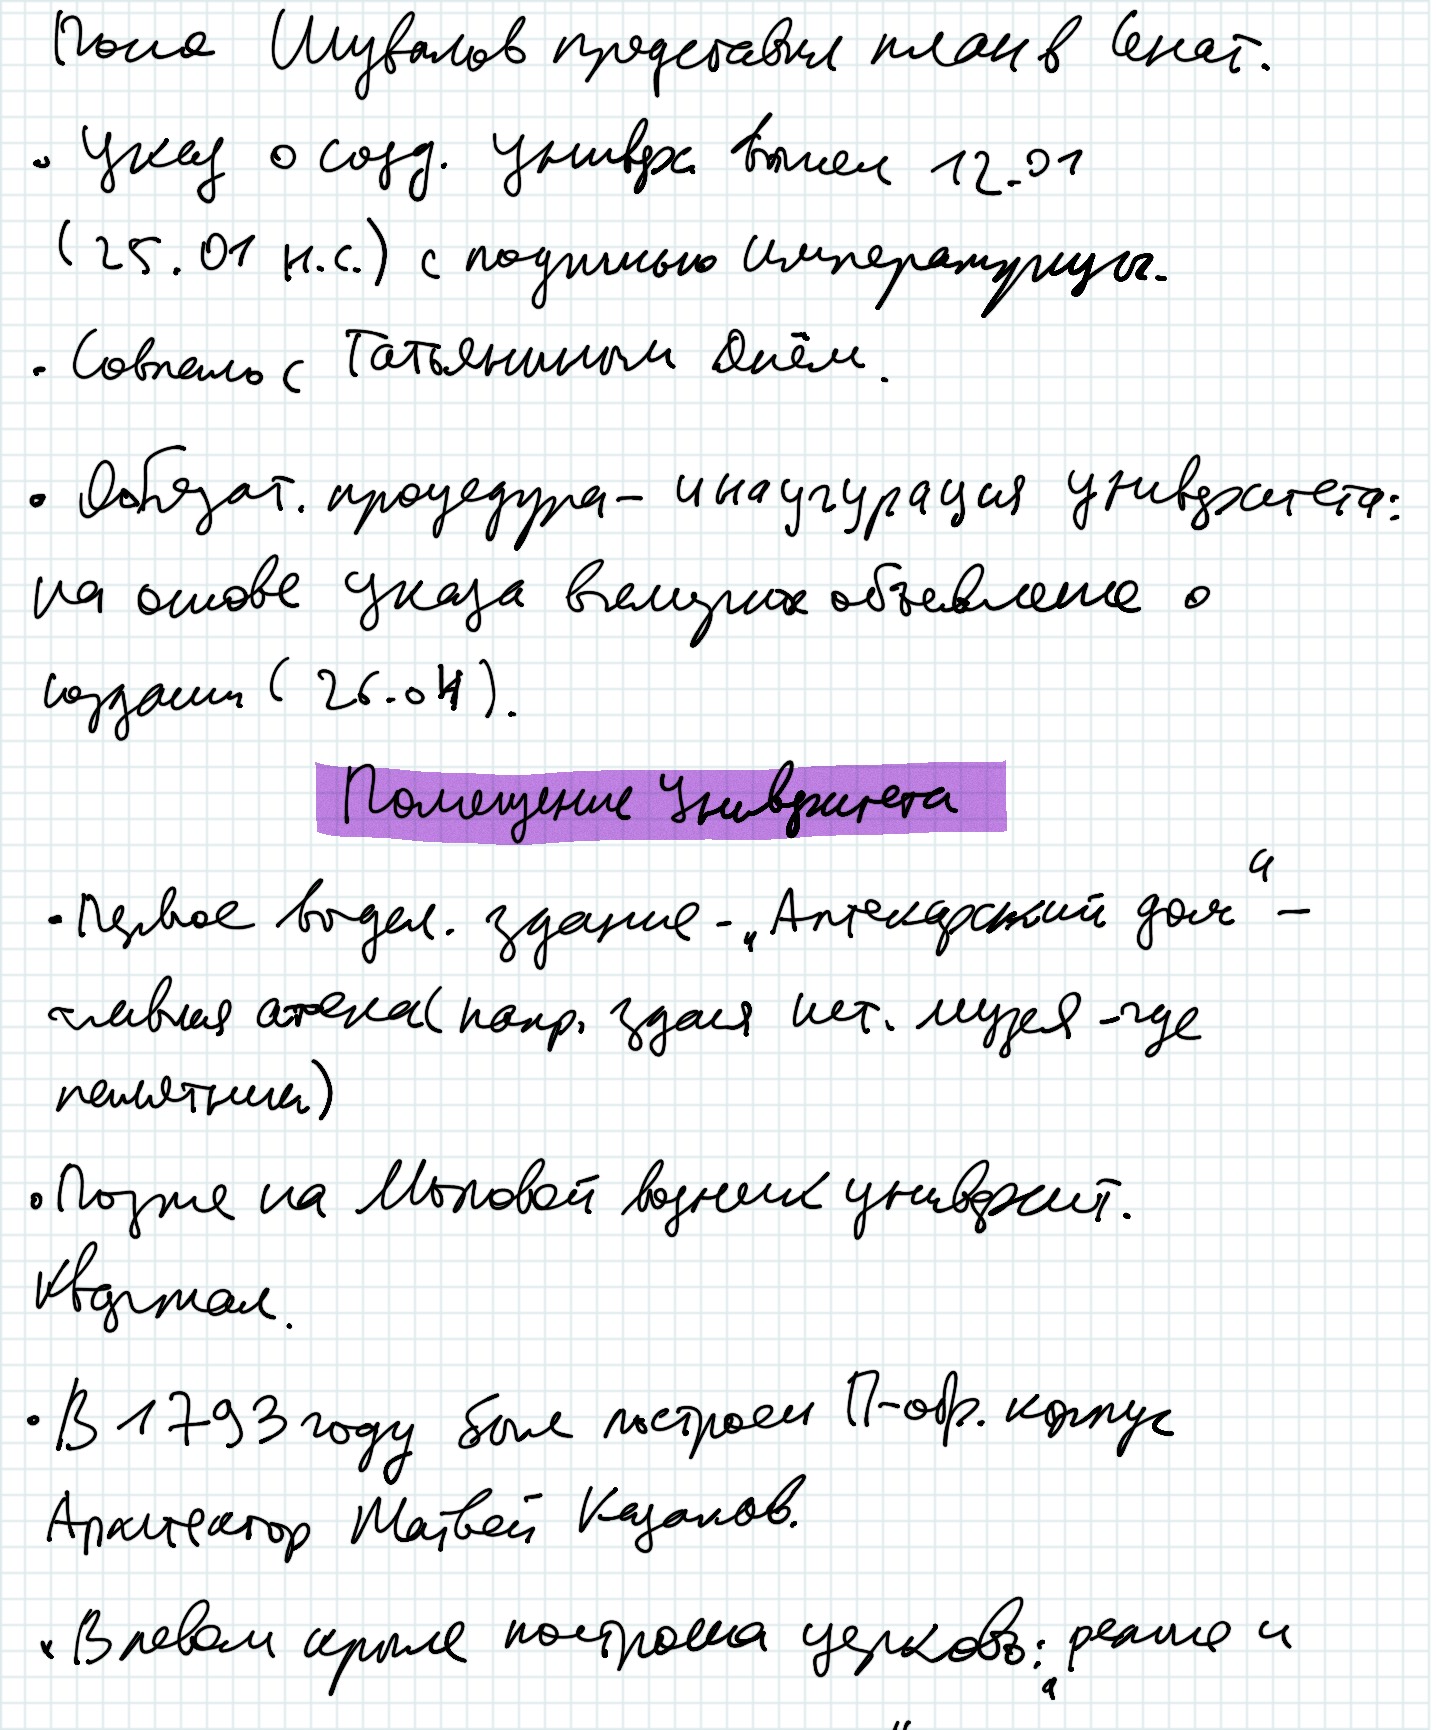 Шувалов представил план в Сенат.
• Указ о созд. универс. вышел 12.01
(25.01 н.с.) с подписью императрицы.
• Совпало с Татьяниным Днём.
• Обязат. процедура – инаугурация университета:
на основе указа объявление о
создании (26.04).
Помещение Университета
• Первое выдел. здание – „Аптекарский дом“ –
главная аптека (напр. здания ист. музея – где
памятник)
• Позже на Моховой возник университ.
квартал.
• В 1793 году был построен П-обр. корпус
Архитектор Матвей Казаков.
• В левом крыле построена церковь: „